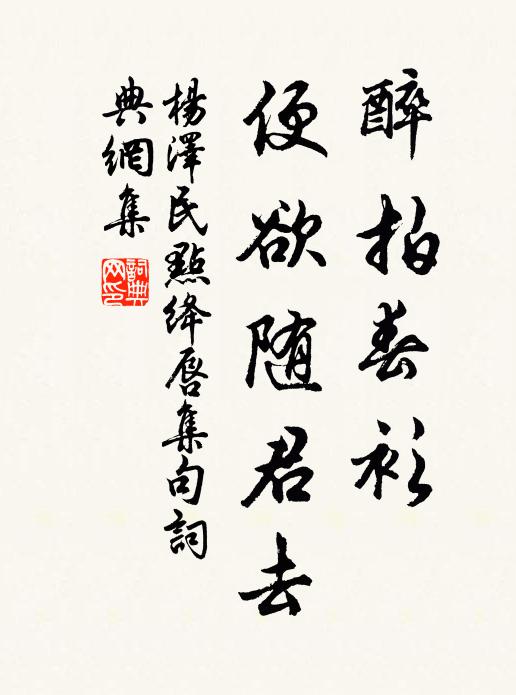 醉拍春衫
便欲随君去
楊澤民點绛唇集句詞
典網集
詞典
网印